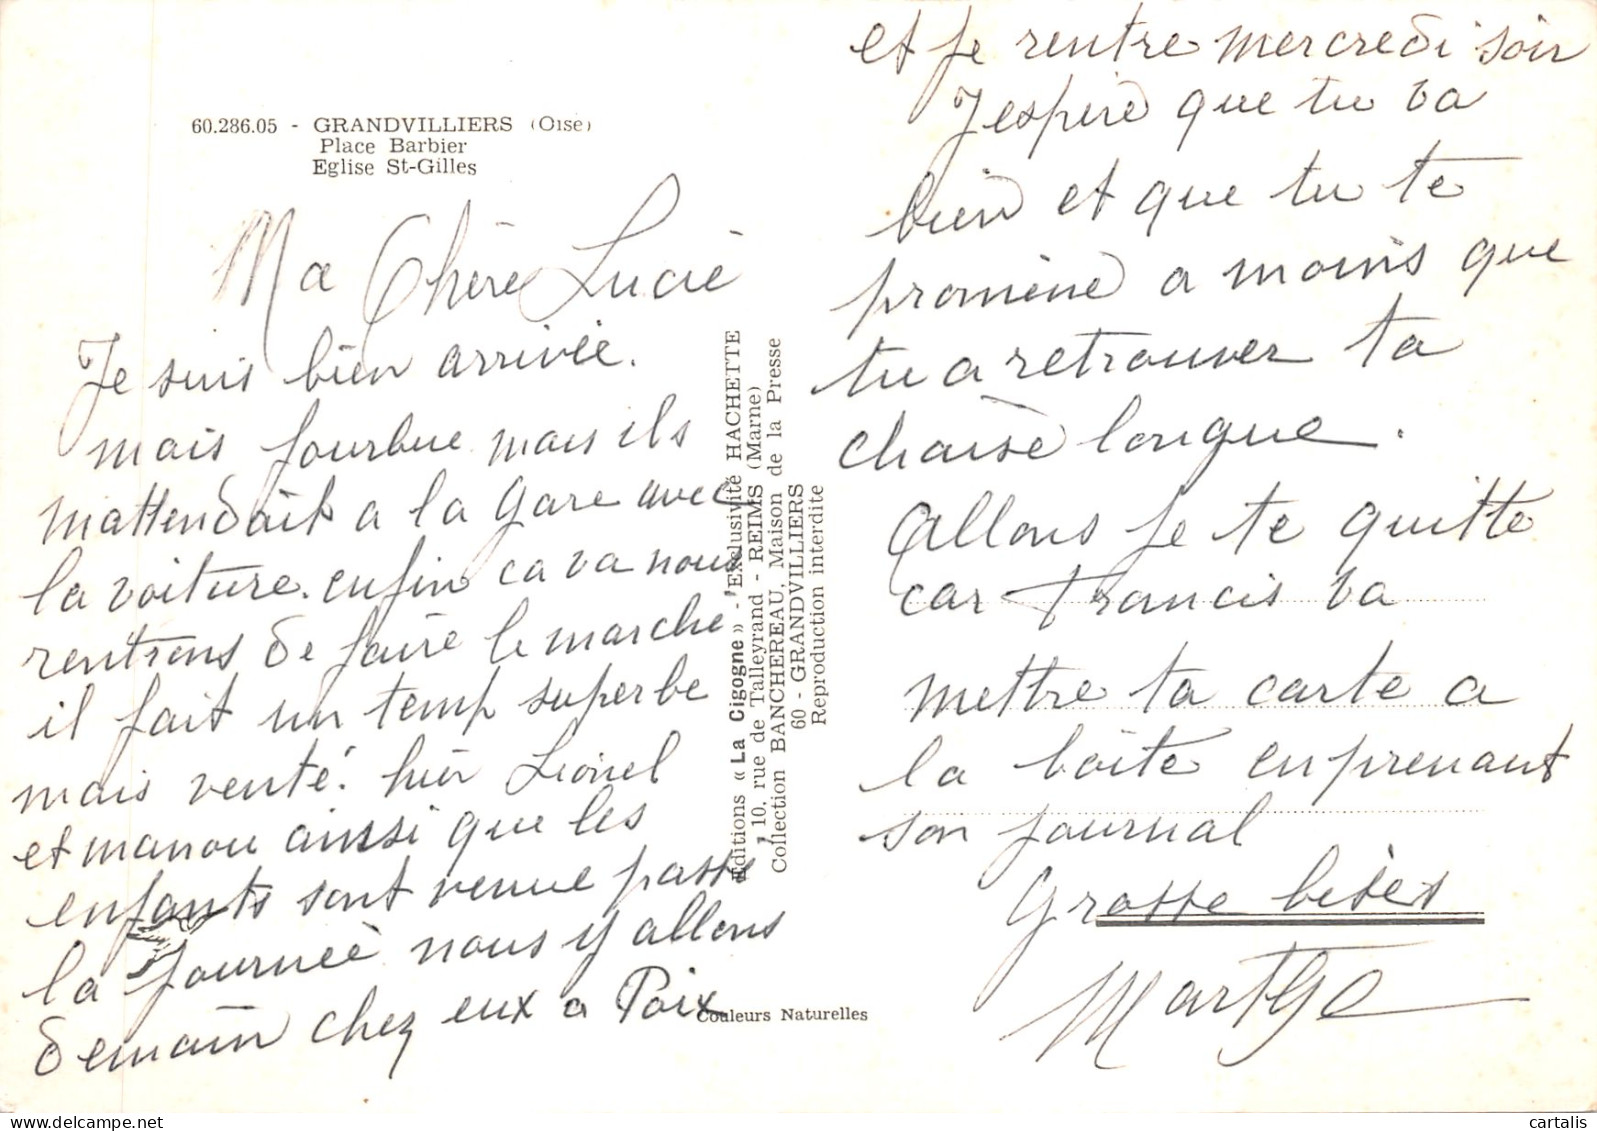 60.286.05 - GRANDVILLIERS (Oise)
Place Barbier
Eglise St-Gilles
Ma Chère Lucie
Je suis bien arrivée.
mais fourbue mais ils
mattendait a la gare avec
la voiture. enfin ca va nous
rentrons de faire le marche
il fait un temp superbe
mais venté. hier Lionel
et manou ainssi que les
enfants sont venue passer
la journeè nous y allons
demain chez eux a Poix
Editions « La Cigogne » - Exclusivité HACHETTE
10, rue de Talleyrand - REIMS (Marne)
Collection BANCHEREAU, Maison de la Presse
60 - GRANDVILLIERS
Reproduction interdite
Couleurs Naturelles
et je rentre mercredi soir
Jespere que tu va
bien et que tu te
promène a moins que
tu a retrouver ta
chaise longue.
Allons je te quitte
car Francis va
mettre ta carte a
la boite en prenant
son journal
Grosse bises
Marthe
cartalis